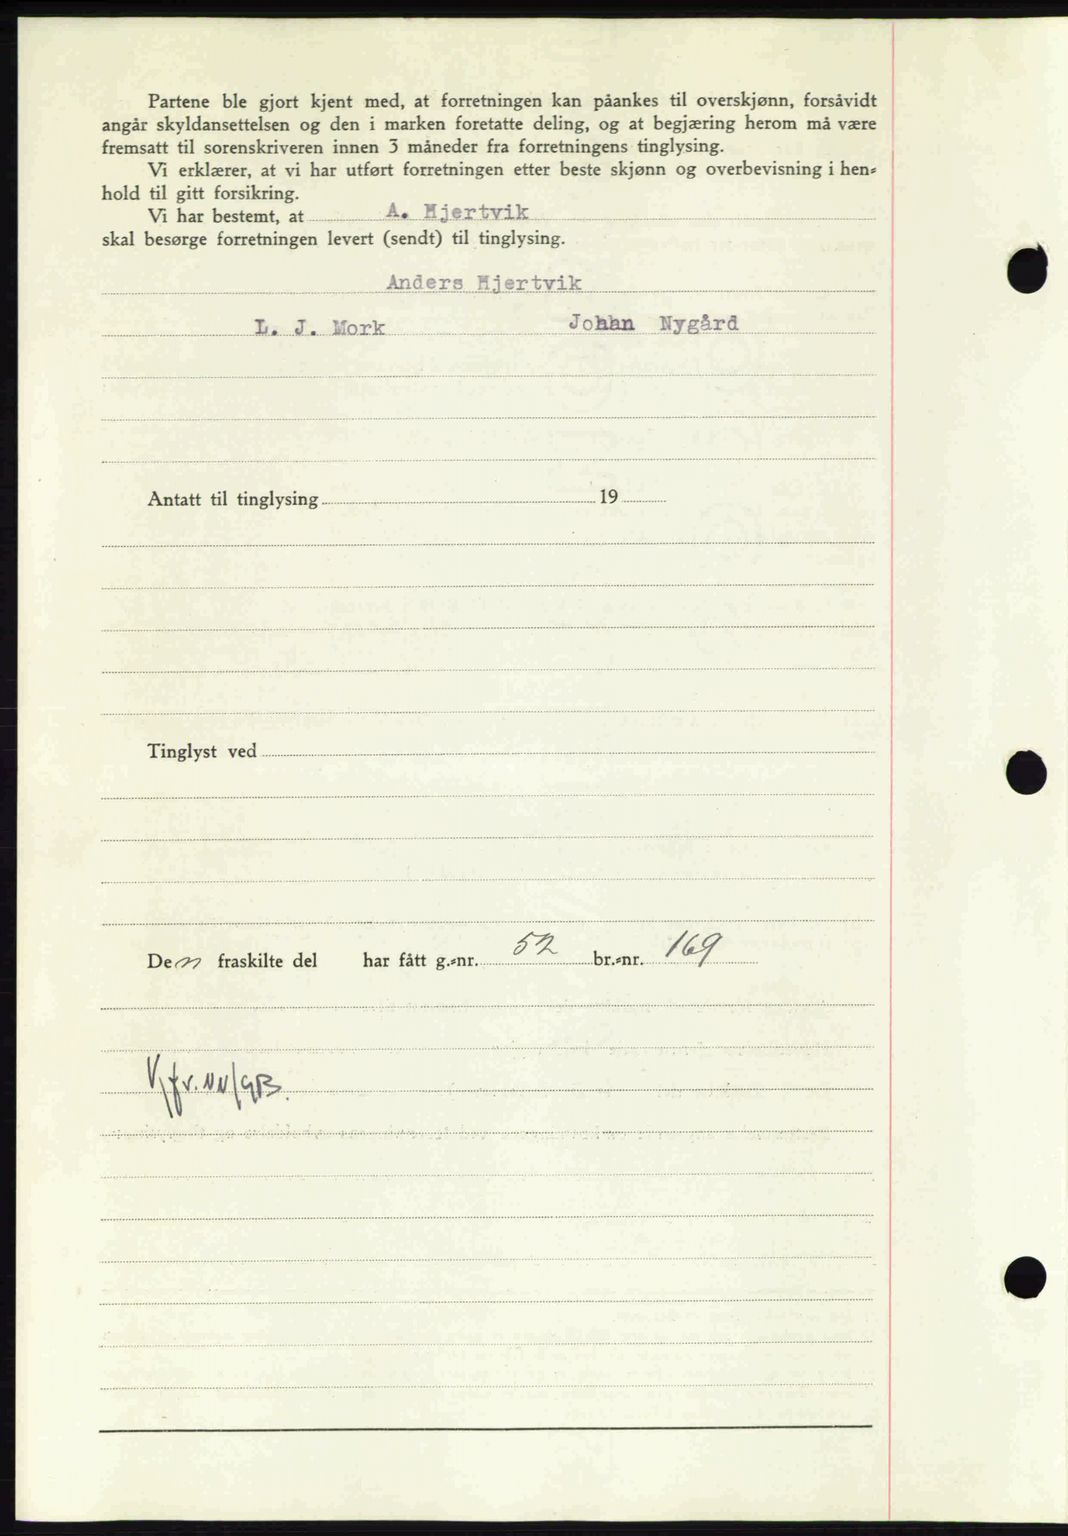 Partene ble gjort kjent med, at forretningen kan påankes til overskjønn, forsåvidt
angår skyldansettelsen og den i marken foretatte deling, og at begjæring herom må være
fremsatt til sorenskriveren innen 3 måneder fra forretningens tinglysing.
Vi erklærer, at vi har utført forretningen etter beste skjønn og overbevisning i hen-
hold til gitt forsikring.
Vi har bestemt, at A. Hjertvik
skal besørge forretningen levert (sendt) til tinglysing.
Anders Hjertvik
L. J. Mork Johan Nygård
Antatt til tinglysing 19
Tinglyst ved
Den fraskilte del har fått g.-nr. 52 br.-nr. 169
V/fr. NN/GB.